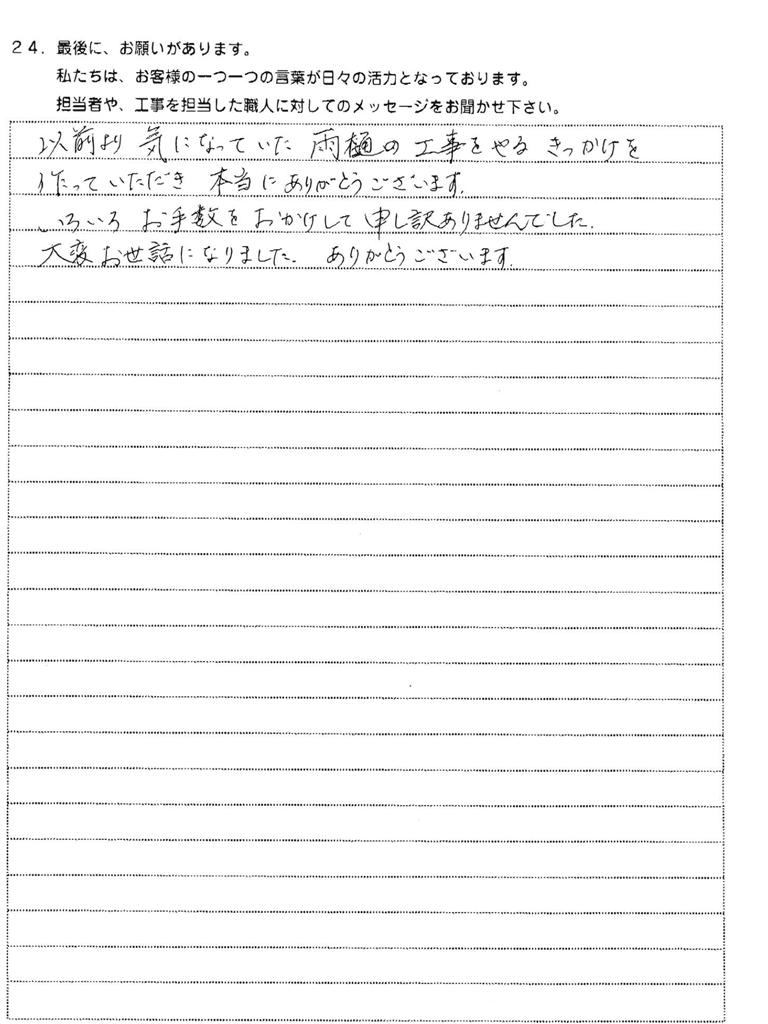 24. 最後に、お願いがあります。
私たちは、お客様の一つ一つの言葉が日々の活力となっております。
担当者や、工事を担当した職人に対してのメッセージをお聞かせ下さい。
以前より 気になっていた 雨樋の 工事をやる きっかけを
作っていただき 本当にありがとうございます.
いろいろ お手数を おかけして 申し訳ありませんでした.
大変お世話になりました. ありがとうございます.